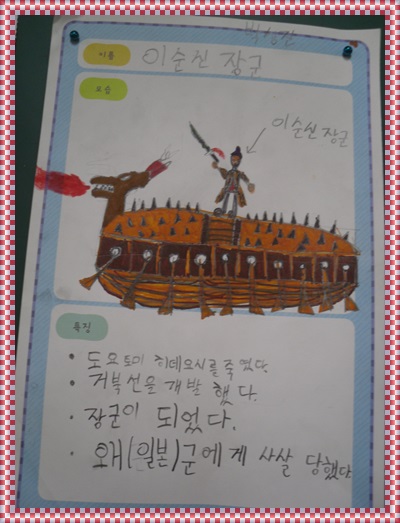 이름
이순신 장군
모습
이순신 장군
특징
• 도요토미 히데요시를 죽였다.
• 거북선을 개발 했다.
• 장군이 되었다.
• 왜(일본)군에게 사살 당했다